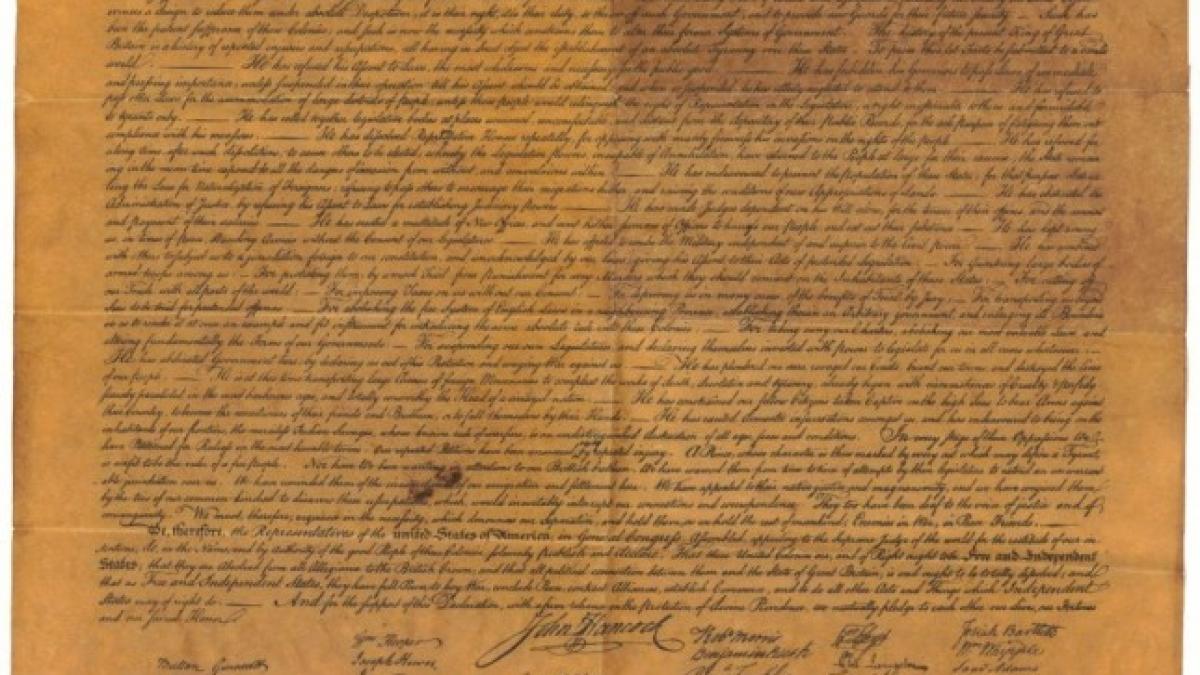 a design to reduce them under absolute Despotism, it is their right, it is their duty, to throw off such Government, and to provide new Guards for their future security. — Such has
been the patient sufferance of these Colonies; and such is now the necessity which constrains them to alter their former Systems of Government. The history of the present King of Great
Britain is a history of repeated injuries and usurpations, all having in direct object the establishment of an absolute Tyranny over these States. To prove this, let Facts be submitted to a candid
world. — He has refused his Assent to Laws, the most wholesome and necessary for the public good. — He has forbidden his Governors to pass Laws of immediate
and pressing importance, unless suspended in their operation till his Assent should be obtained; and when so suspended, he has utterly neglected to attend to them. — He has refused to
pass other Laws for the accommodation of large districts of people, unless those people would relinquish the right of Representation in the Legislature, a right inestimable to them and formidable
to tyrants only. — He has called together legislative bodies at places unusual, uncomfortable, and distant from the depository of their Public Records, for the sole purpose of fatiguing them into
compliance with his measures. — He has dissolved Representative Houses repeatedly, for opposing with manly firmness his invasions on the rights of the people. — He has refused for
a long time, after such dissolutions, to cause others to be elected; whereby the Legislative powers, incapable of Annihilation, have returned to the People at large for their exercise; the State remain
ing in the mean time exposed to all the dangers of invasion from without, and convulsions within. — He has endeavoured to prevent the population of these States; for that purpose obstruc
ting the Laws for Naturalization of Foreigners; refusing to pass others to encourage their migrations hither, and raising the conditions of new Appropriations of Lands. — He has obstructed the
Administration of Justice, by refusing his Assent to Laws for establishing Judiciary powers. — He has made Judges dependent on his Will alone, for the tenure of their offices, and the amount
and payment of their salaries. — He has erected a multitude of New Offices, and sent hither swarms of Officers to harrass our People, and eat out their substance. — He has kept among
us, in times of peace, Standing Armies without the Consent of our legislatures. — He has affected to render the Military independent of and superior to the Civil power. — He has combined
with others to subject us to a jurisdiction foreign to our constitution, and unacknowledged by our laws; giving his Assent to their Acts of pretended Legislation: — For Quartering large bodies of
armed troops among us: — For protecting them, by a mock Trial, from punishment for any Murders which they should commit on the Inhabitants of these States: — For cutting off
our Trade with all parts of the world: — For imposing Taxes on us without our Consent: — For depriving us in many cases, of the benefits of Trial by Jury: — For transporting us beyond
Seas to be tried for pretended offences — For abolishing the free System of English Laws in a neighbouring Province, establishing therein an Arbitrary government, and enlarging its Boundaries
so as to render it at once an example and fit instrument for introducing the same absolute rule into these Colonies: — For taking away our Charters, abolishing our most valuable Laws, and
altering fundamentally the Forms of our Governments: — For suspending our own Legislatures, and declaring themselves invested with power to legislate for us in all cases whatsoever. —
He has abdicated Government here, by declaring us out of his Protection and waging War against us. — He has plundered our seas, ravaged our Coasts, burnt our towns, and destroyed the lives
of our people. — He is at this time transporting large Armies of foreign Mercenaries to compleat the works of death, desolation and tyranny, already begun with circumstances of Cruelty & perfidy
scarcely paralleled in the most barbarous ages, and totally unworthy the Head of a civilized nation. — He has constrained our fellow Citizens taken Captive on the high Seas to bear Arms against
their Country, to become the executioners of their friends and Brethren, or to fall themselves by their Hands. — He has excited domestic insurrections amongst us, and has endeavoured to bring on the
inhabitants of our frontiers, the merciless Indian Savages, whose known rule of warfare, is an undistinguished destruction of all ages, sexes and conditions. In every stage of these Oppressions We
have Petitioned for Redress in the most humble terms: Our repeated Petitions have been answered only by repeated injury. A Prince, whose character is thus marked by every act which may define a Tyrant,
is unfit to be the ruler of a free people. Nor have We been wanting in attentions to our Brittish brethren. We have warned them from time to time of attempts by their legislature to extend an unwarrant
able jurisdiction over us. We have reminded them of the circumstances of our emigration and settlement here. We have appealed to their native justice and magnanimity, and we have conjured them
by the ties of our common kindred to disavow these usurpations, which, would inevitably interrupt our connections and correspondence. They too have been deaf to the voice of justice and of
consanguinity. We must, therefore, acquiesce in the necessity, which denounces our Separation, and hold them, as we hold the rest of mankind, Enemies in War, in Peace Friends. —
We, therefore, the Representatives of the united States of America, in General Congress, Assembled, appealing to the Supreme Judge of the world for the rectitude of our in
tentions, do, in the Name, and by Authority of the good People of these Colonies, solemnly publish and declare, That these United Colonies are, and of Right ought to be Free and Independent
States; that they are Absolved from all Allegiance to the British Crown, and that all political connection between them and the State of Great Britain, is and ought to be totally dissolved; and
that as Free and Independent States, they have full Power to levy War, conclude Peace, contract Alliances, establish Commerce, and to do all other Acts and Things which Independent
States may of right do. — And for the support of this Declaration, with a firm reliance on the Protection of divine Providence, we mutually pledge to each other our Lives, our Fortunes
and our sacred Honor.
John Hancock
Wm Hooper
Joseph Hewes
Button Gwinnett
Robt Morris
Benjamin Rush
Josiah Bartlett
Wm Whipple
Saml Adams